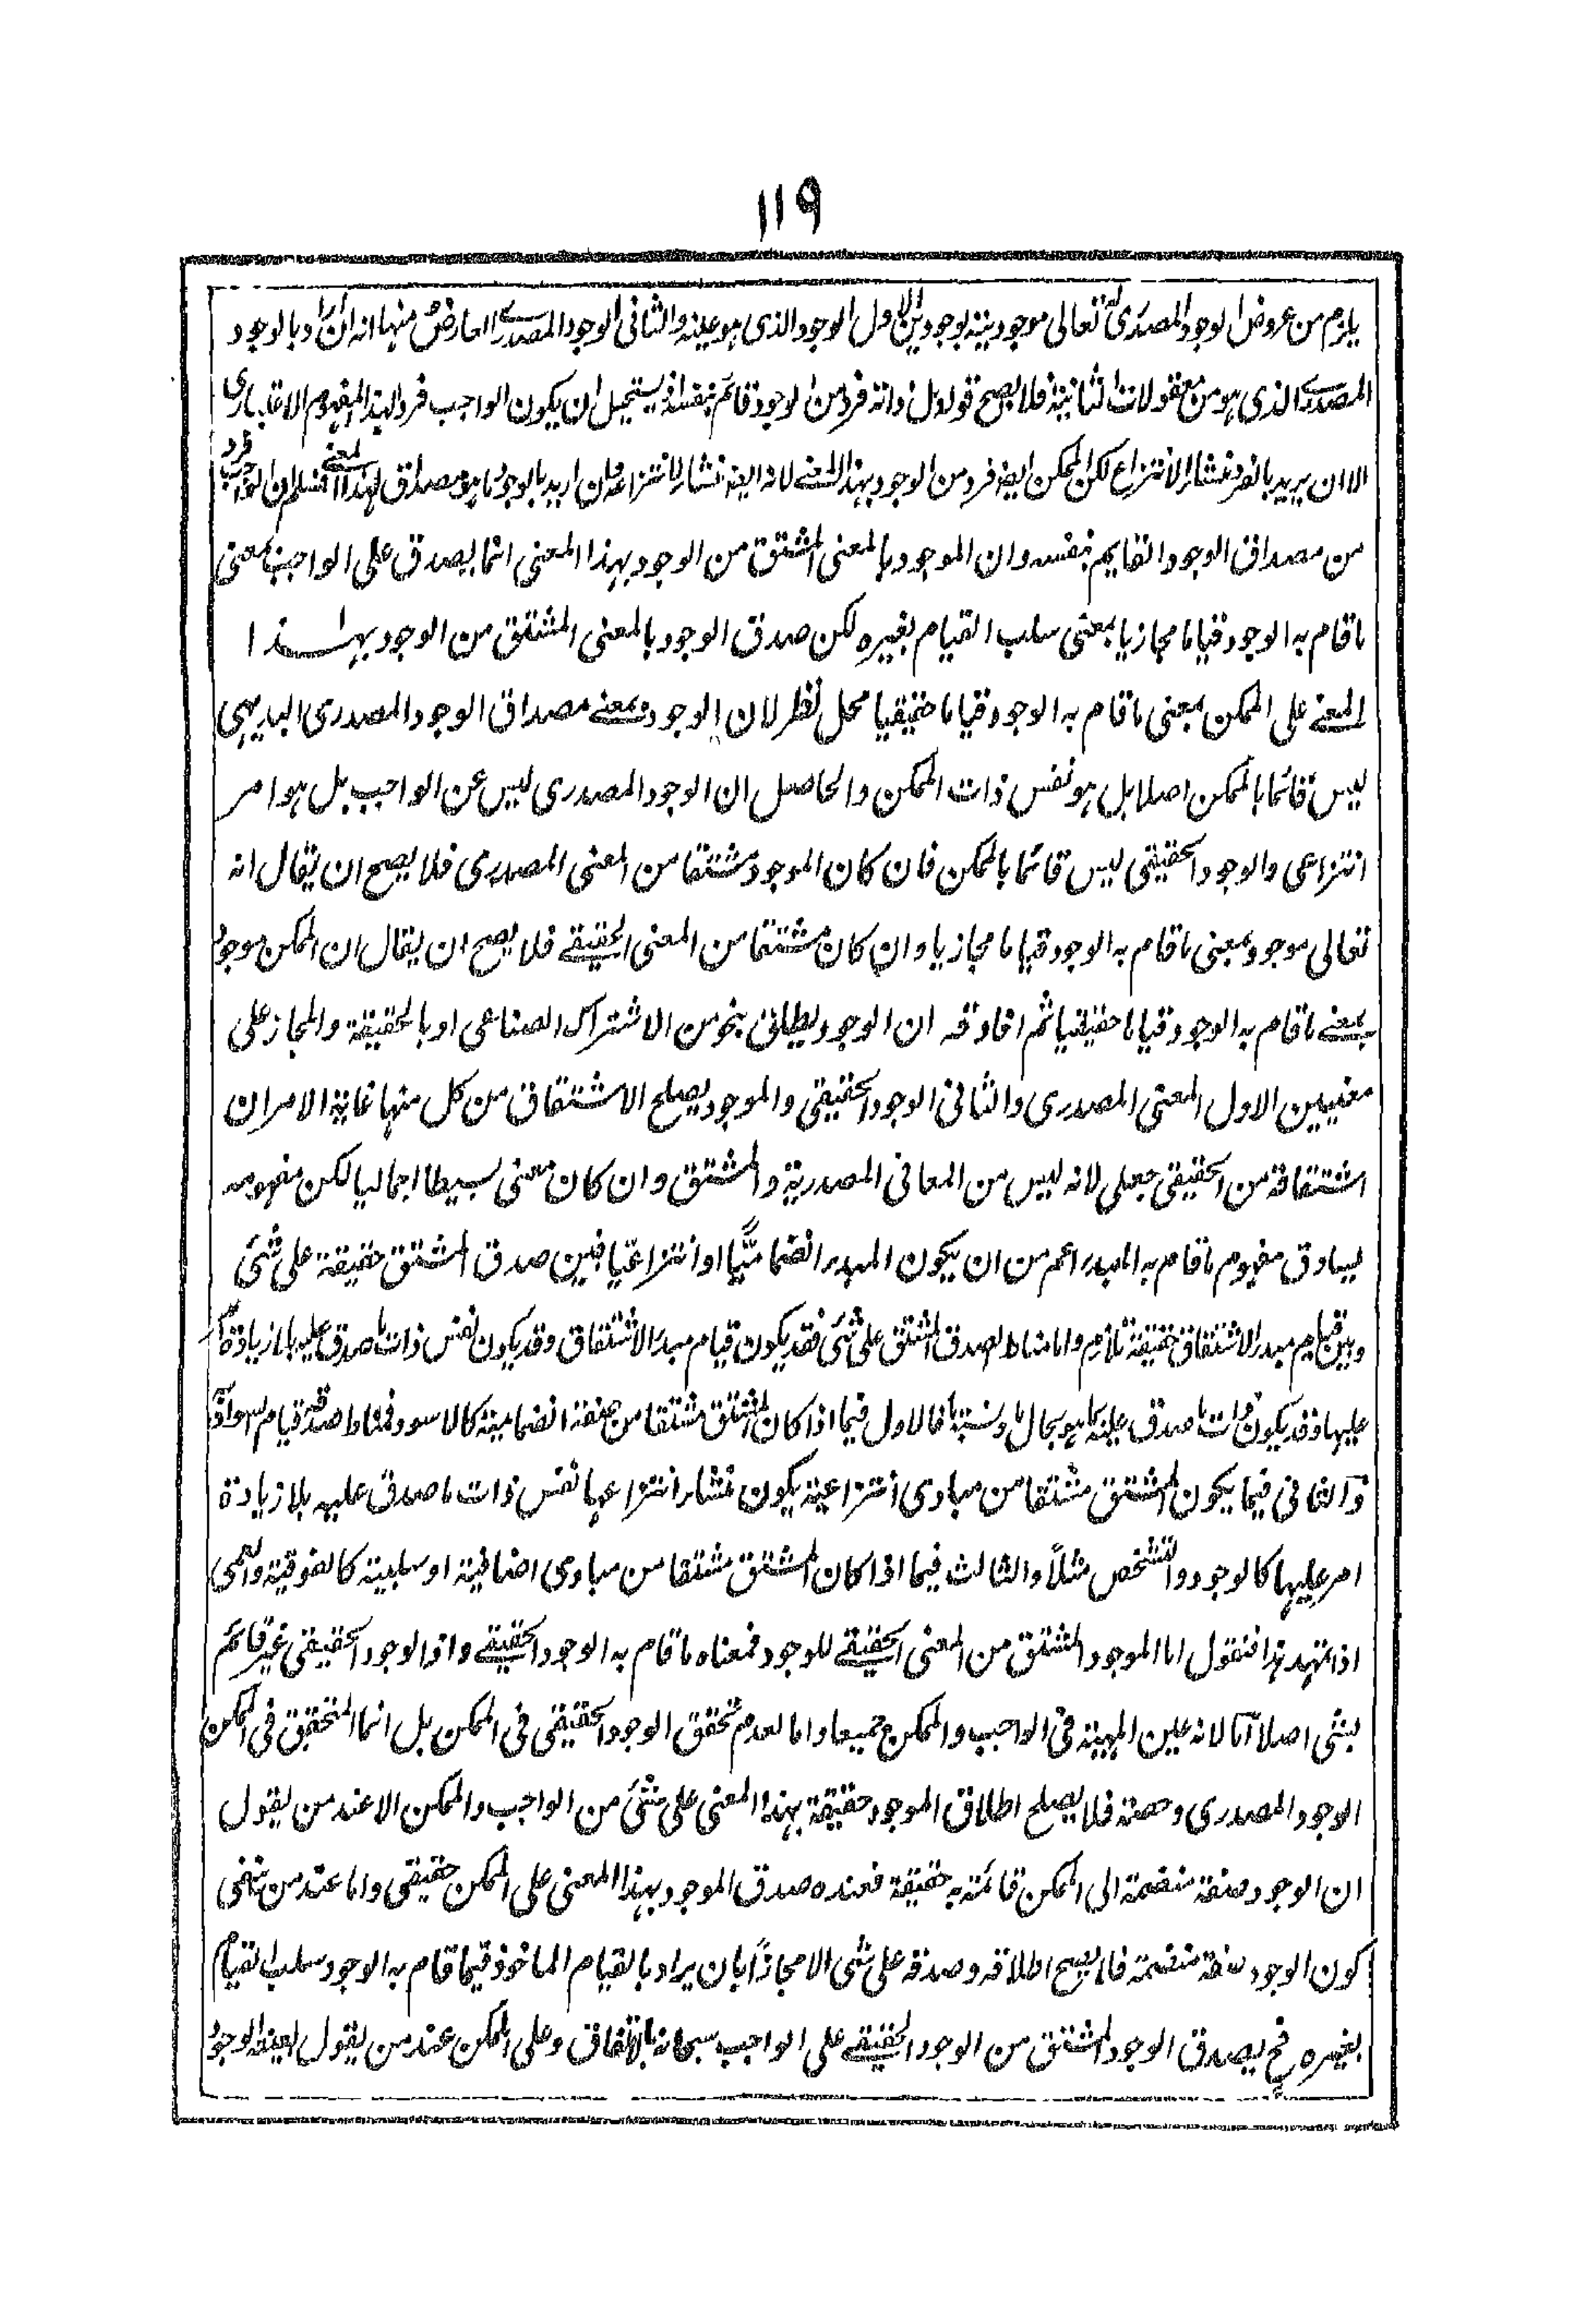 ١١٩
يلزم من عروض الوجود المصدرى له تعالى موجوديته بوجودين الاول الوجود الذى هو عينه والثانى الوجود المصدرى العارض ومنها انه ان اراد بالوجود
المصدرى الذى هو من المعقولات الثانية فلا يصح قوله بل ذاته فرد من الوجود قائم بنفسه اذ يستحيل ان يكون الواجب فردا لهذا المفهوم الاعتبارى
الا ان يريد بالفرد منشأ الانتزاع لكن الممكن ايضا فرد من الوجود بهذا المعنے لانه ايضا منشأ لانتزاعه وان اريد بالوجود ما هو مصداق لهذا المعنے فنسلم ان الواجب فرد
من مصداق الوجود القايم بنفسه وان الموجود بالمعنى المشتق من الوجود بهذا المعنى انما يصدق على الواجب بمعنى
ما قام به الوجود قياما مجازيا بمعنى سلب القيام بغيره لكن صدق الوجود بالمعنى المشتق من الوجود بهذا
المعنے على الممكن بمعنى ما قام به الوجود قياما حقيقيا محل نظر لان الوجود بمعنے مصداق الوجود المصدرى البديهى
ليس قائما بالممكن اصلا بل هو نفس ذات الممكن والحاصل ان الوجود المصدرى ليس عن الواجب بل هو امر
انتزاعى والوجود الحقيقى ليس قائما بالممكن فان كان الموجود مشتقا من المعنى المصدرى فلا يصح ان يقال انه
تعالى موجود بمعنى ما قام به الوجود قياما مجازيا وان كان مشتقا من المعنى الحقيقے فلا يصح ان يقال ان الممكن موجود
بمعنے ما قام به الوجود قياما حقيقيا ثم افاد قه ان الوجود يطلق بنحو من الاشتراك الصناعى او بالحقيقة والمجاز على
معنيين الاول المعنى المصدرى والثانى الوجود الحقيقى والموجود يصلح الاشتقاق من كل منها غاية الامر ان
اشتقاقه من الحقيقى جعلى لانه ليس من المعانى المصدرية والمشتق وان كان معنى بسيطا اجماليا لكن مفهومه
يساوق مفهوم ما قام به المبدر اعم من ان يكون المبدر انضماميًّا او انتزاعيًا فبين صدق المشتق حقيقة على شئ
وبين قيام مبدر الاشتقاق حقيقة تلازم واما مناط صدق المشتق على شئ فقد يكون قيام مبدر الاشتقاق وقد يكون نفس ذات ما صدق عليه بلا زيادة امر
عليها وقد يكون ذات ما صدق عليه كما هو بحال ما ونسبة ما فالاول فيما اذا كان المشتق مشتقا من صفة انضمامية كالاسود فمناط صدقه قيام السواد
والثانى فيما يكون المشتق مشتقا من مبادى انتزاعية يكون منشأ انتزاعها نفس ذات ما صدق عليه بلا زيادة
امر عليها كالوجود والتشخص مثلاً والثالث فيما اذا كان المشتق مشتقا من مبادى اضافية او سلبية كالفوقية والعمى
اذا تمهد هذا فنقول اما الموجود المشتق من المعنى الحقيقے للوجود فمعناه ما قام به الوجود الحقيقے واذ الوجود الحقيقى غير قائم
بشئ اصلا اما لانه عين المهية فى الواجب والممكن جميعا واما لعدم تحقق الوجود الحقيقى فى الممكن بل انما المتحقق فى الممكن
الوجود المصدرى وحصته فلا يصلح اطلاق الموجود حقيقة بهذا المعنى على شئ من الواجب والممكن الا عند من يقول
ان الوجود صفة منضمة الى الممكن قائمة به حقيقة فعنده صدق الموجود بهذا المعنى على الممكن حقيقى واما عند من نفى
كون الوجود صفة منضمة فلا يصح اطلاقه وصدقه على شئ الا مجازًا بان يراد بالقيام الماخوذ فيما قام به الوجود سلب القيام
بغيره فح يصدق الوجود المشتق من الوجود الحقيقے على الواجب سبحانه بالاتفاق وعلى الممكن عند من يقول بعينية الوجود